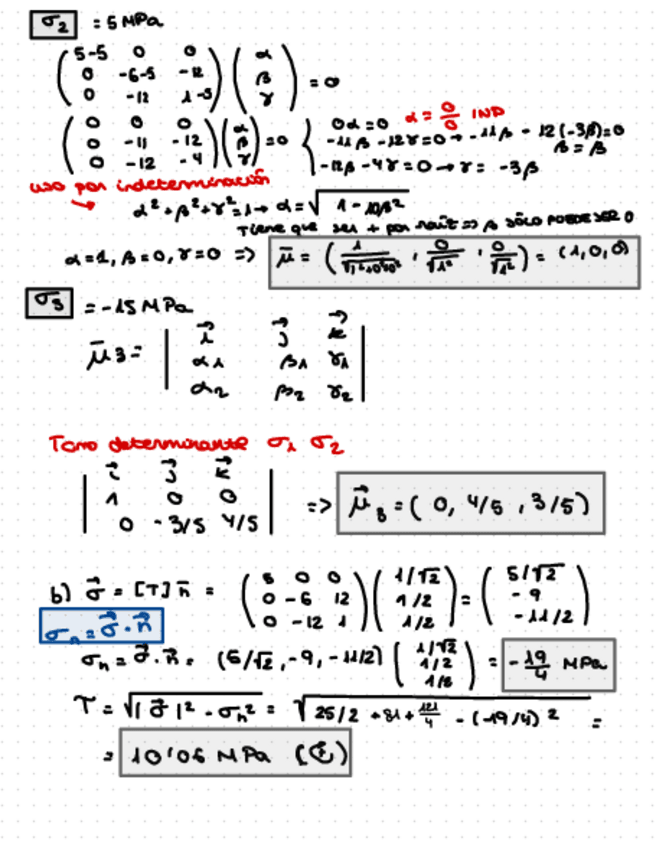 σ₂ = 5 MPa
( 5-5 0 0 ; 0 -6-5 -12 ; 0 -12 1-5 ) ( α ; β ; γ ) = 0
( 0 0 0 ; 0 -11 -12 ; 0 -12 -4 ) ( α ; β ; γ ) = 0 { 0α=0 α = 0/0 IND
-11β -12γ=0 → -11β - 12(-3β)=0
β = β
-12β -4γ=0 → γ = -3β
uso por indeterminación
→ α² + β² + γ² = 1 → α = √(1 - 10β²)
Tiene que ser + por raíz => β SÓLO PUEDE SER 0
α=1, β=0, γ=0 => μ̄ = ( 1/√(1²+0²+0²) , 0/√1² , 0/√1² ) = (1,0,0)
σ₃ = -15 MPa
μ̄3 = | i⃗ j⃗ k⃗ ; α1 β1 γ1 ; α2 β2 γ2 |
Tomo determinante σ₁ σ₂
| i⃗ j⃗ k⃗ ; 1 0 0 ; 0 -3/5 4/5 | => μ⃗₃ = ( 0, 4/5 , 3/5 )
b) σ⃗ = [T] n̄ = ( 5 0 0 ; 0 -6 12 ; 0 -12 1 ) ( 1/√2 ; 1/2 ; 1/2 ) = ( 5/√2 ; -9 ; -11/2 )
σₙ = σ⃗ · n⃗
σₙ = σ⃗ · n̄ = (5/√2 , -9, -11/2) ( 1/√2 ; 1/2 ; 1/2 ) = -19/4 MPa
τ = √(|σ⃗|² - σₙ²) = √(25/2 + 81 + 121/4 - (-19/4)²) =
= 10'06 MPa (±)